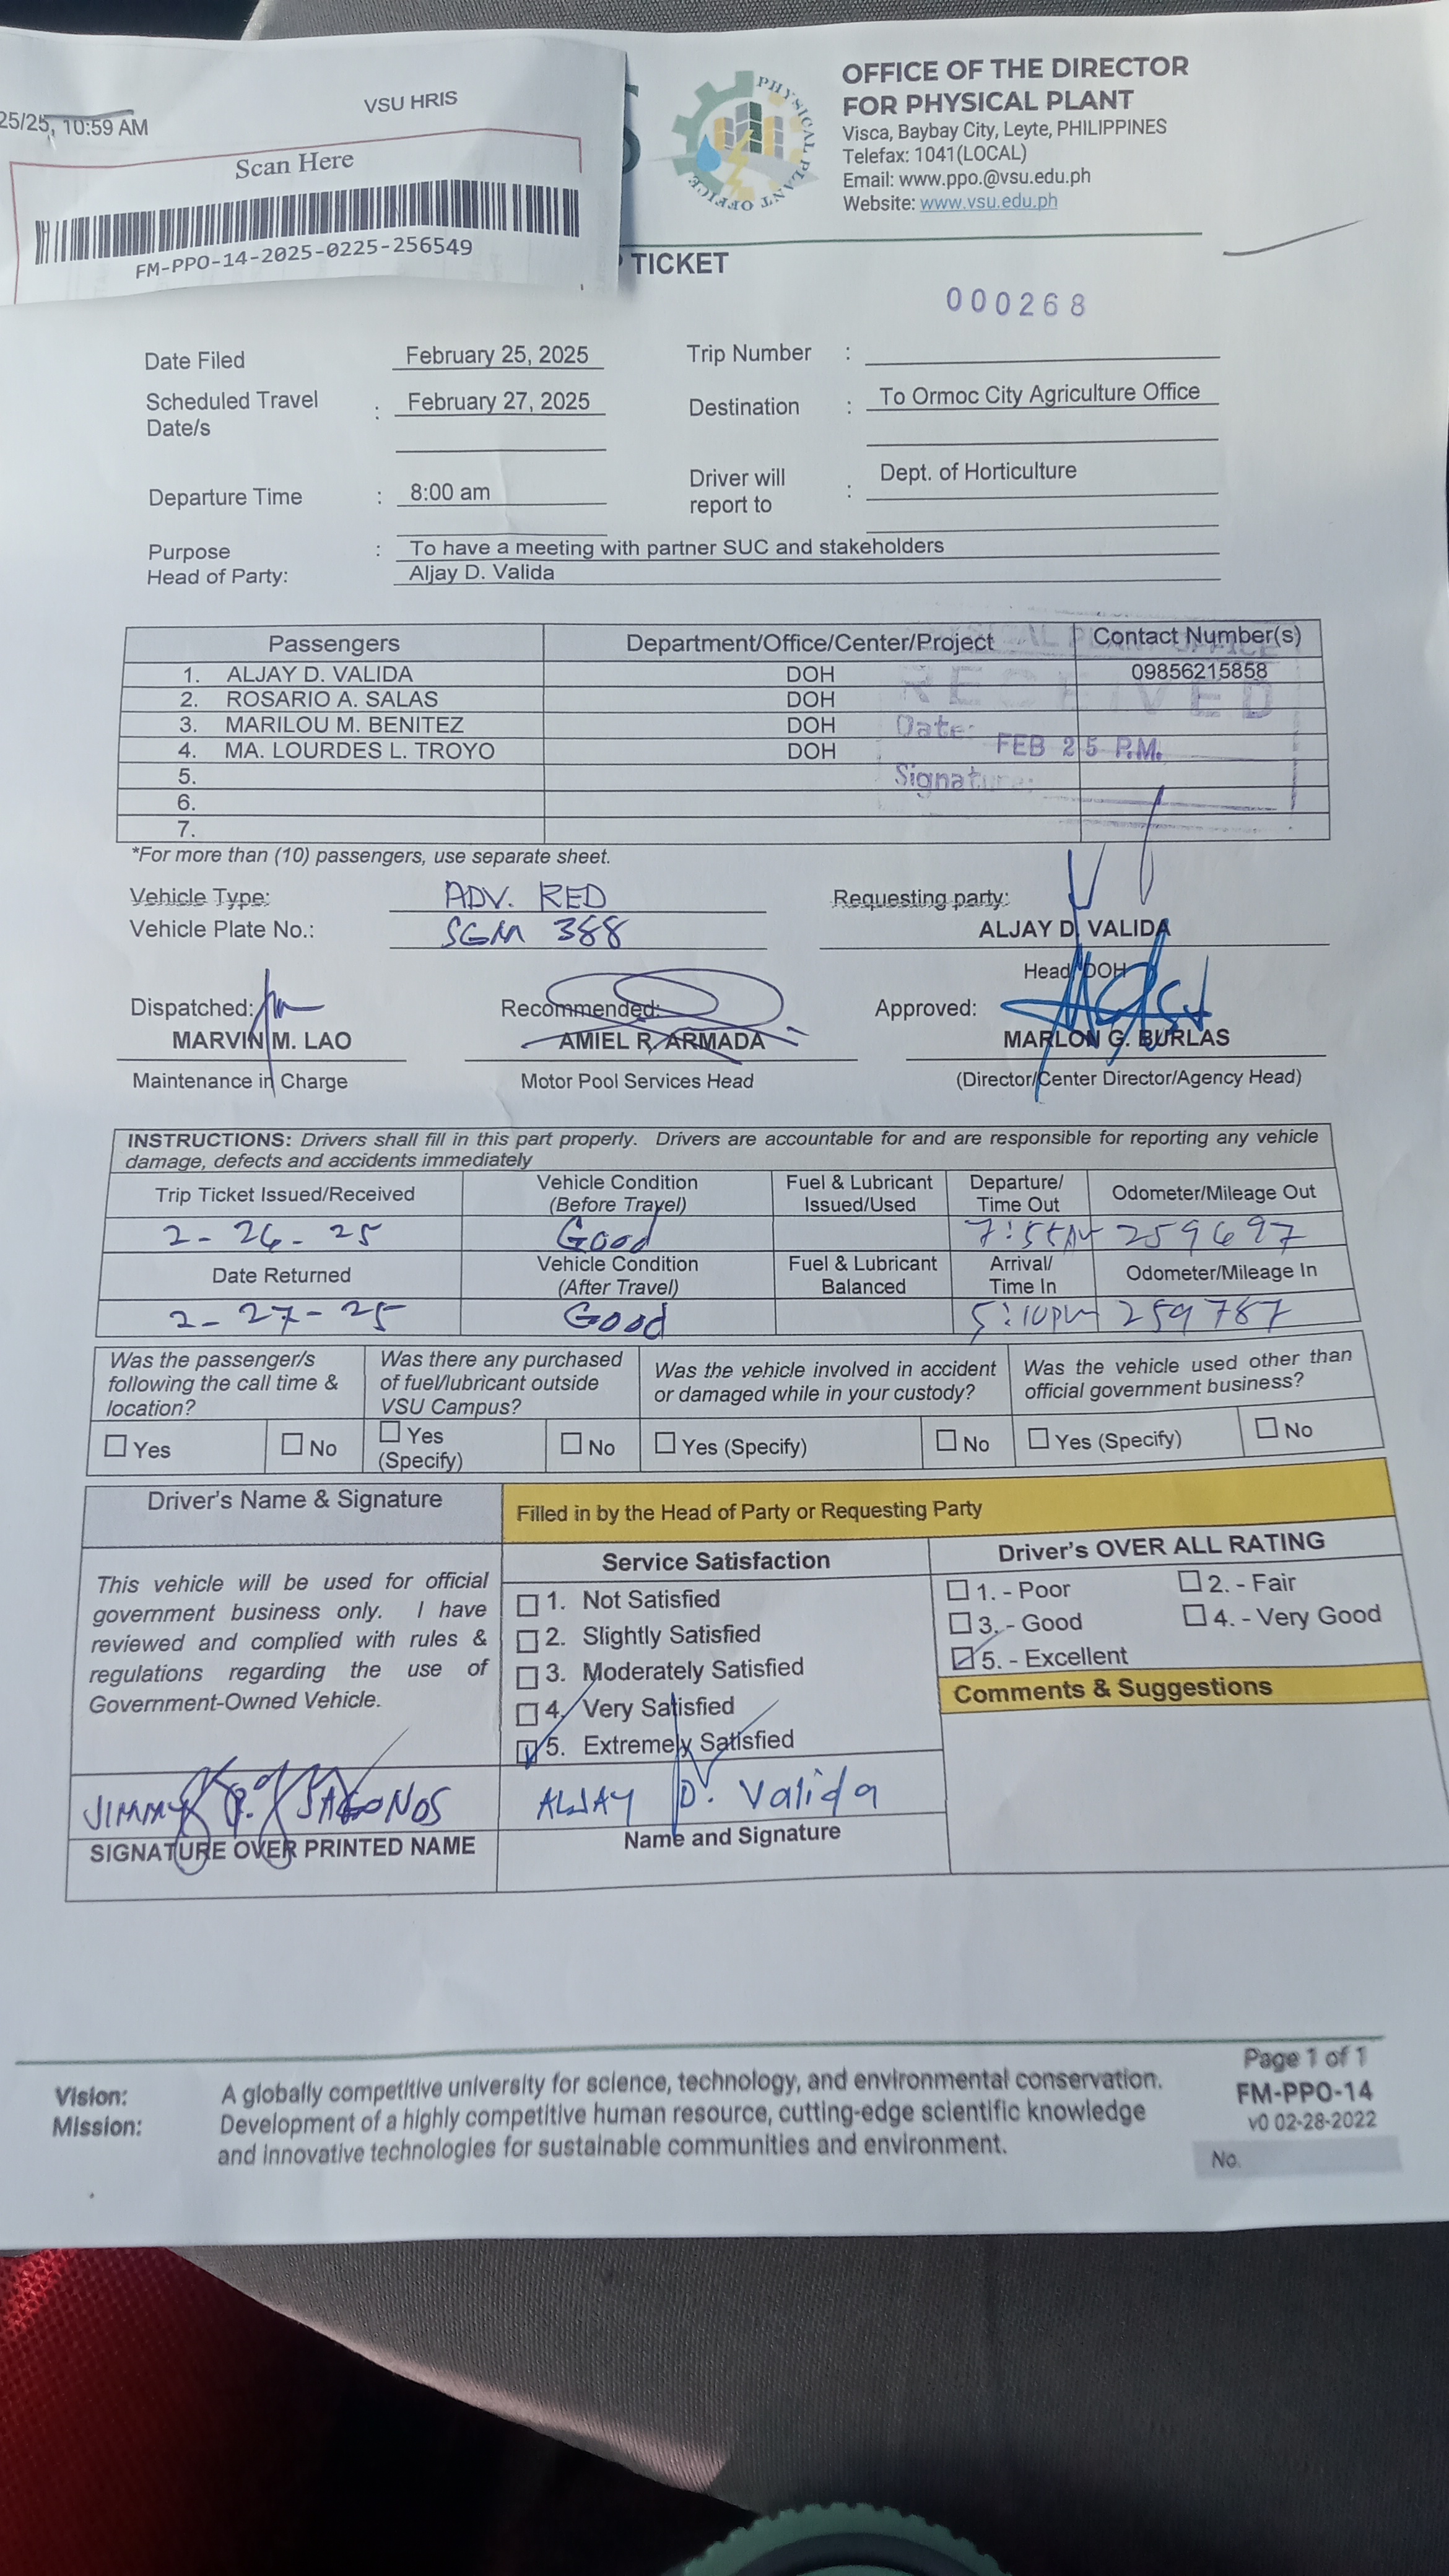 25/25, 10:59 AM
VSU HRIS
Scan Here
FM-PPO-14-2025-0225-256549
PHYSICAL PLANT OFFICE
OFFICE OF THE DIRECTOR
FOR PHYSICAL PLANT
Visca, Baybay City, Leyte, PHILIPPINES
Telefax: 1041(LOCAL)
Email: www.ppo.@vsu.edu.ph
Website: www.vsu.edu.ph
TICKET
000268
Date Filed February 25, 2025 Trip Number :
Scheduled Travel Date/s : February 27, 2025 Destination : To Ormoc City Agriculture Office
Departure Time : 8:00 am Driver will report to : Dept. of Horticulture
Purpose : To have a meeting with partner SUC and stakeholders
Head of Party: Aljay D. Valida
Passengers Department/Office/Center/Project Contact Number(s)
1. ALJAY D. VALIDA DOH 09856215858
2. ROSARIO A. SALAS DOH
3. MARILOU M. BENITEZ DOH
4. MA. LOURDES L. TROYO DOH
5.
6.
7.
RECEIVED
Date: FEB 25 P.M.
Signature:
*For more than (10) passengers, use separate sheet.
Vehicle Type: ADV. RED Requesting party:
Vehicle Plate No.: SGM 388 ALJAY D. VALIDA
Head, DOH
Dispatched: Recommended: Approved:
MARVIN M. LAO AMIEL R. ARMADA MARLON G. BURLAS
Maintenance in Charge Motor Pool Services Head (Director/Center Director/Agency Head)
INSTRUCTIONS: Drivers shall fill in this part properly. Drivers are accountable for and are responsible for reporting any vehicle
damage, defects and accidents immediately
Trip Ticket Issued/Received Vehicle Condition (Before Travel) Fuel & Lubricant Issued/Used Departure/ Time Out Odometer/Mileage Out
2-26-25 Good 259697
Date Returned Vehicle Condition (After Travel) Fuel & Lubricant Balanced Arrival/ Time In Odometer/Mileage In
2-27-25 Good 5:10pm 259787
Was the passenger/s following the call time & location? Was there any purchased of fuel/lubricant outside VSU Campus? Was the vehicle involved in accident or damaged while in your custody? Was the vehicle used other than official government business?
Yes No Yes (Specify) No Yes (Specify) No Yes (Specify) No
Driver's Name & Signature Filled in by the Head of Party or Requesting Party
Service Satisfaction Driver's OVER ALL RATING
This vehicle will be used for official
government business only. I have
reviewed and complied with rules &
regulations regarding the use of
Government-Owned Vehicle.
1. Not Satisfied
2. Slightly Satisfied
3. Moderately Satisfied
4. Very Satisfied
5. Extremely Satisfied
1. - Poor 2. - Fair
3. - Good 4. - Very Good
5. - Excellent
Comments & Suggestions
JIMMY ALJAY D. Valida
SIGNATURE OVER PRINTED NAME Name and Signature
Page 1 of 1
FM-PPO-14
v0 02-28-2022
No.
Vision: A globally competitive university for science, technology, and environmental conservation.
Mission: Development of a highly competitive human resource, cutting-edge scientific knowledge
and innovative technologies for sustainable communities and environment.